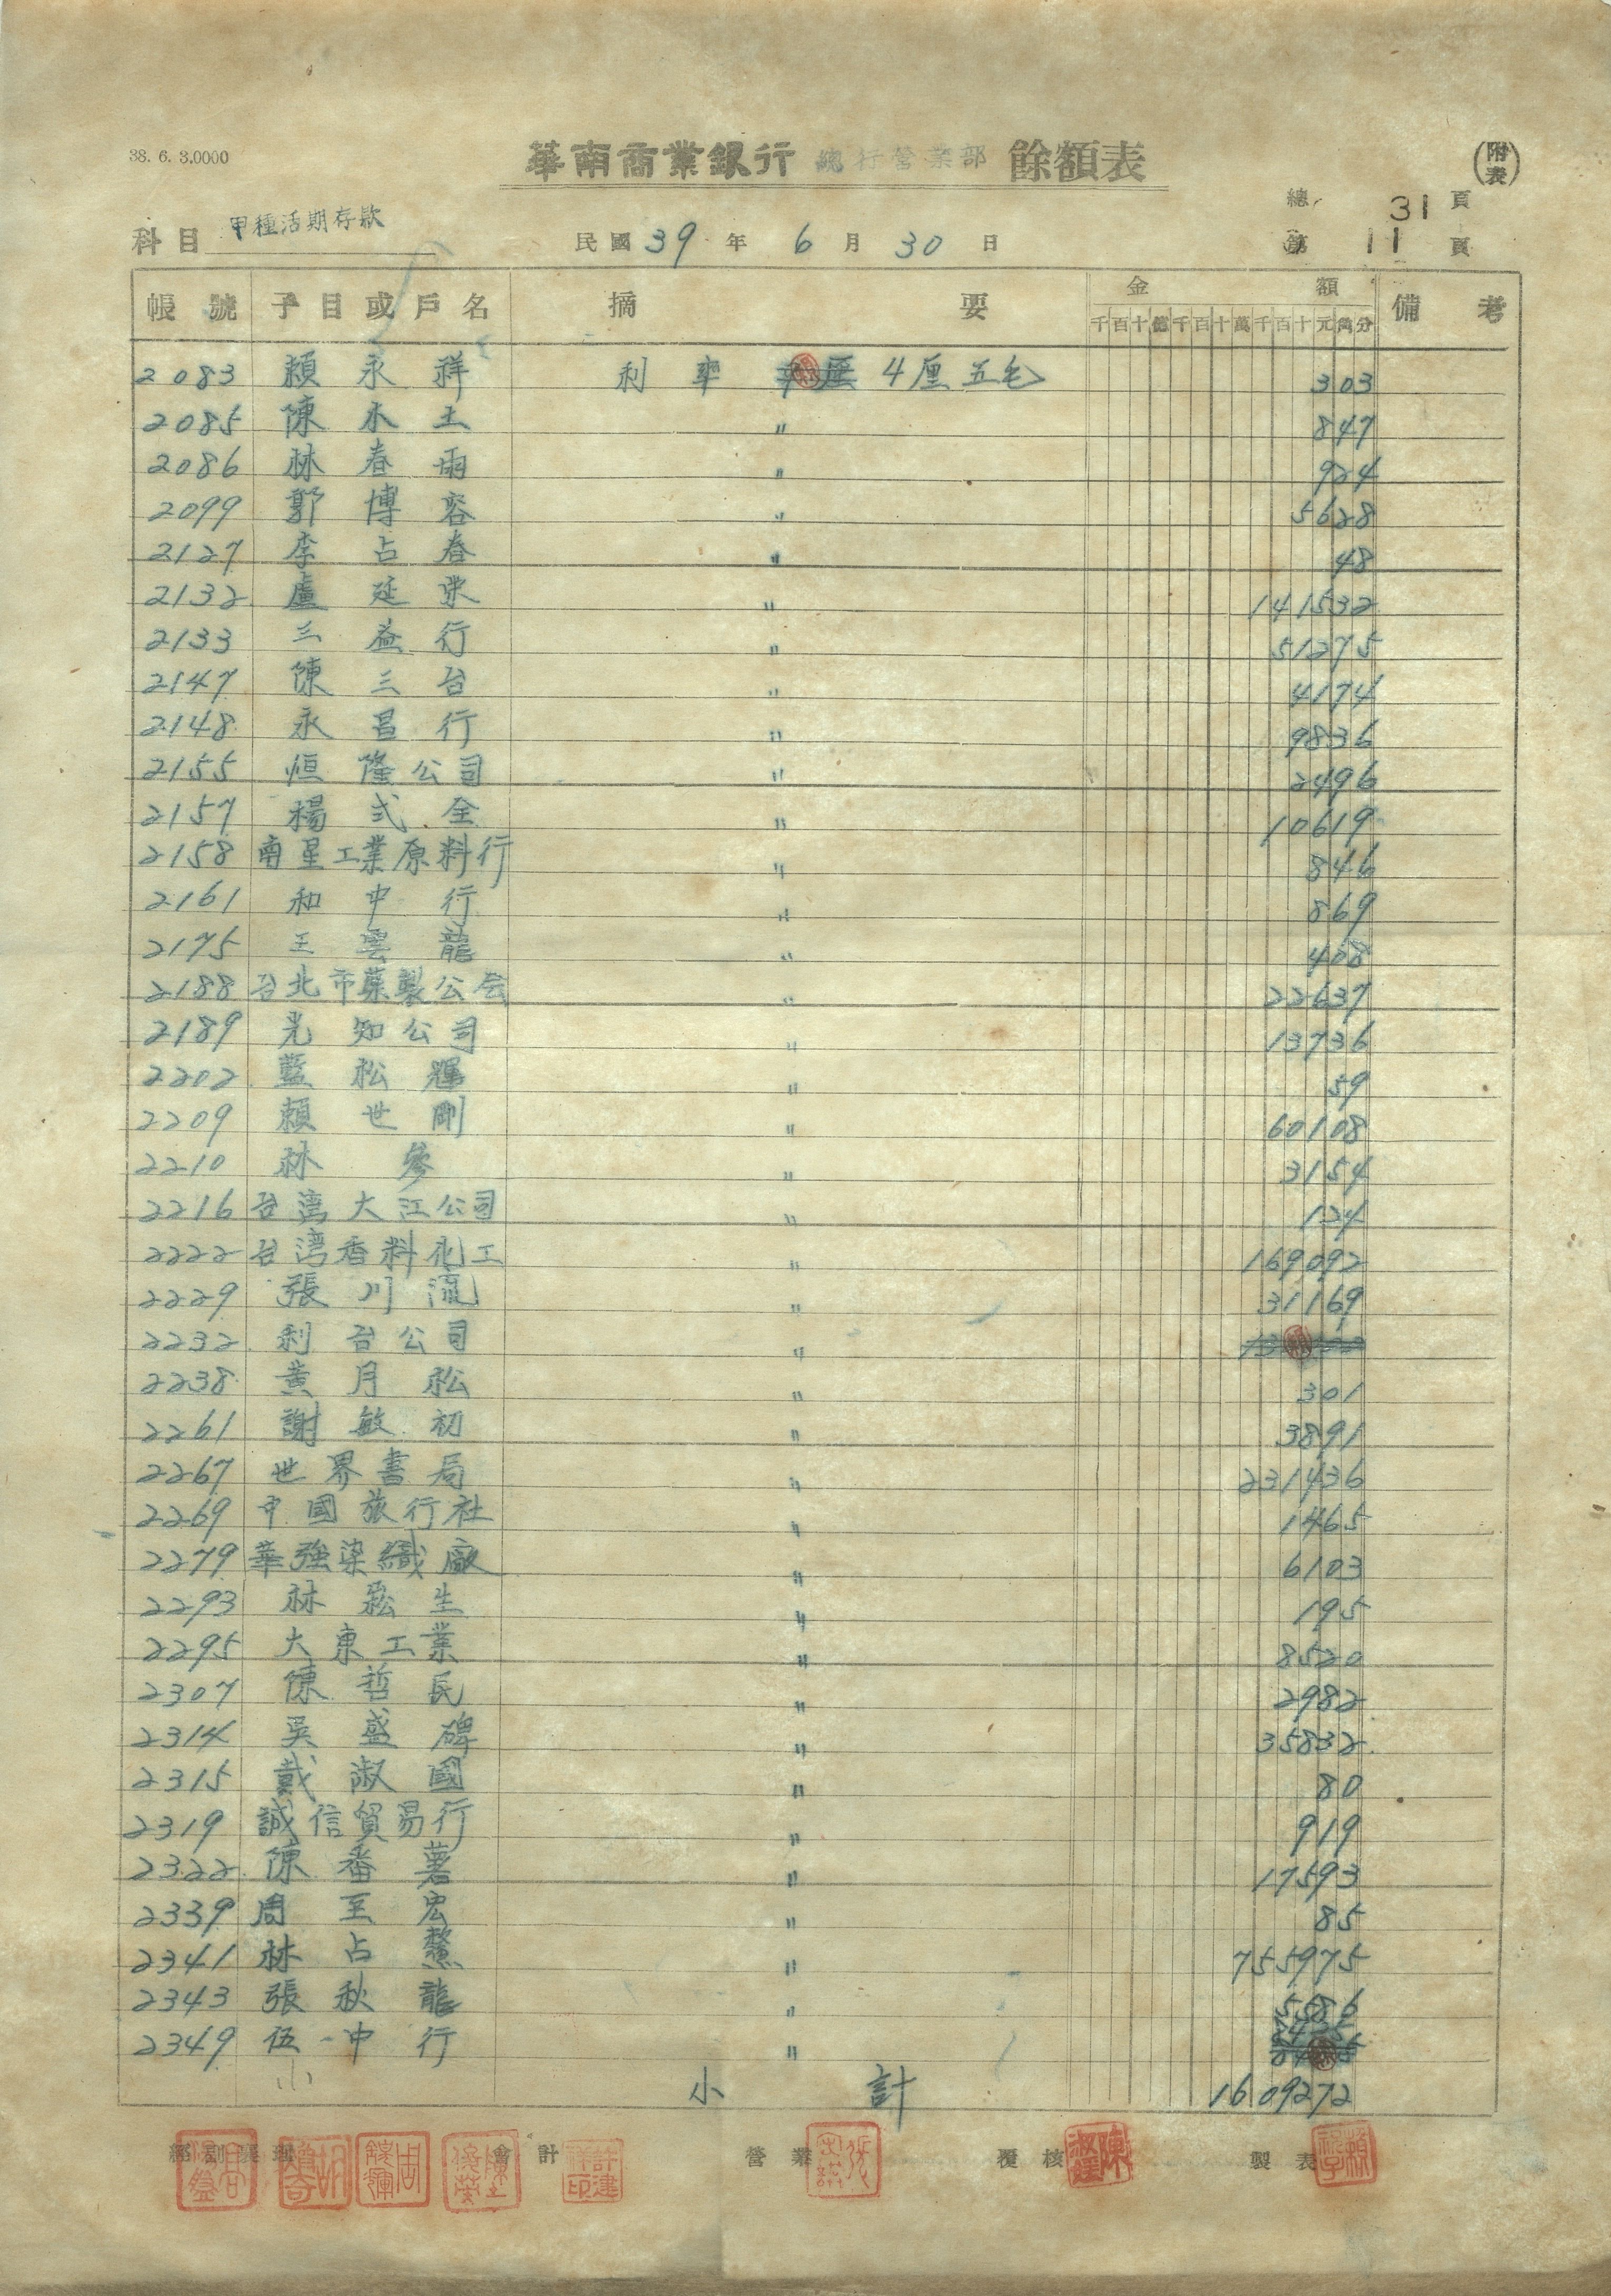 38. 6. 3.0000
華南商業銀行 總行營業部 餘額表
(附表)
總 31 頁
科目 甲種活期存款 民國 39 年 6 月 30 日 第 11 頁
帳號 子目或戶名 摘要 金額 備考
千百十億千百十萬千百十元角分
2083 賴永祥 利率 4厘五毛 303
2085 陳水土 〃 847
2086 林春雨 〃 924
2099 郭博容 〃 5628
2127 李占春 〃 48
2132 盧延 〃 141532
2133 三益行 〃 51275
2147 陳三台 〃 4174
2148 永昌行 〃 9836
2155 恒隆公司 〃 2496
2157 楊式全 〃 10619
2158 南星工業原料行 〃 846
2161 和中行 〃 869
2175 王雲龍 〃 408
2188 台北市藥製公会 〃 22637
2189 光知公司 〃 13736
2202 藍松輝 〃 59
2209 賴世剛 〃 60108
2210 林參 〃 3154
2216 台湾大江公司 〃 124
2222 台湾香料化工 〃 169092
2229 張川流 〃 31169
2232 利台公司 〃
2238 黄月松 〃 301
2261 謝敏初 〃 3891
2267 世界書局 〃 231436
2269 中國旅行社 〃 1465
2279 華強染織廠 〃 6103
2293 林松生 〃 195
2295 大東工業 〃 8520
2307 陳哲民 〃 2982
2314 吳盛碑 〃 35832
2315 戴淑國 〃 80
2319 誠信貿易行 〃 919
2322 陳番薯 〃 17593
2339 周至宏 〃 85
2341 林占鰲 〃 755975
2343 張秋龍 〃 5586
2349 伍中行 〃
小計 1609272
經副襄理 會計 營業 覆核 製表